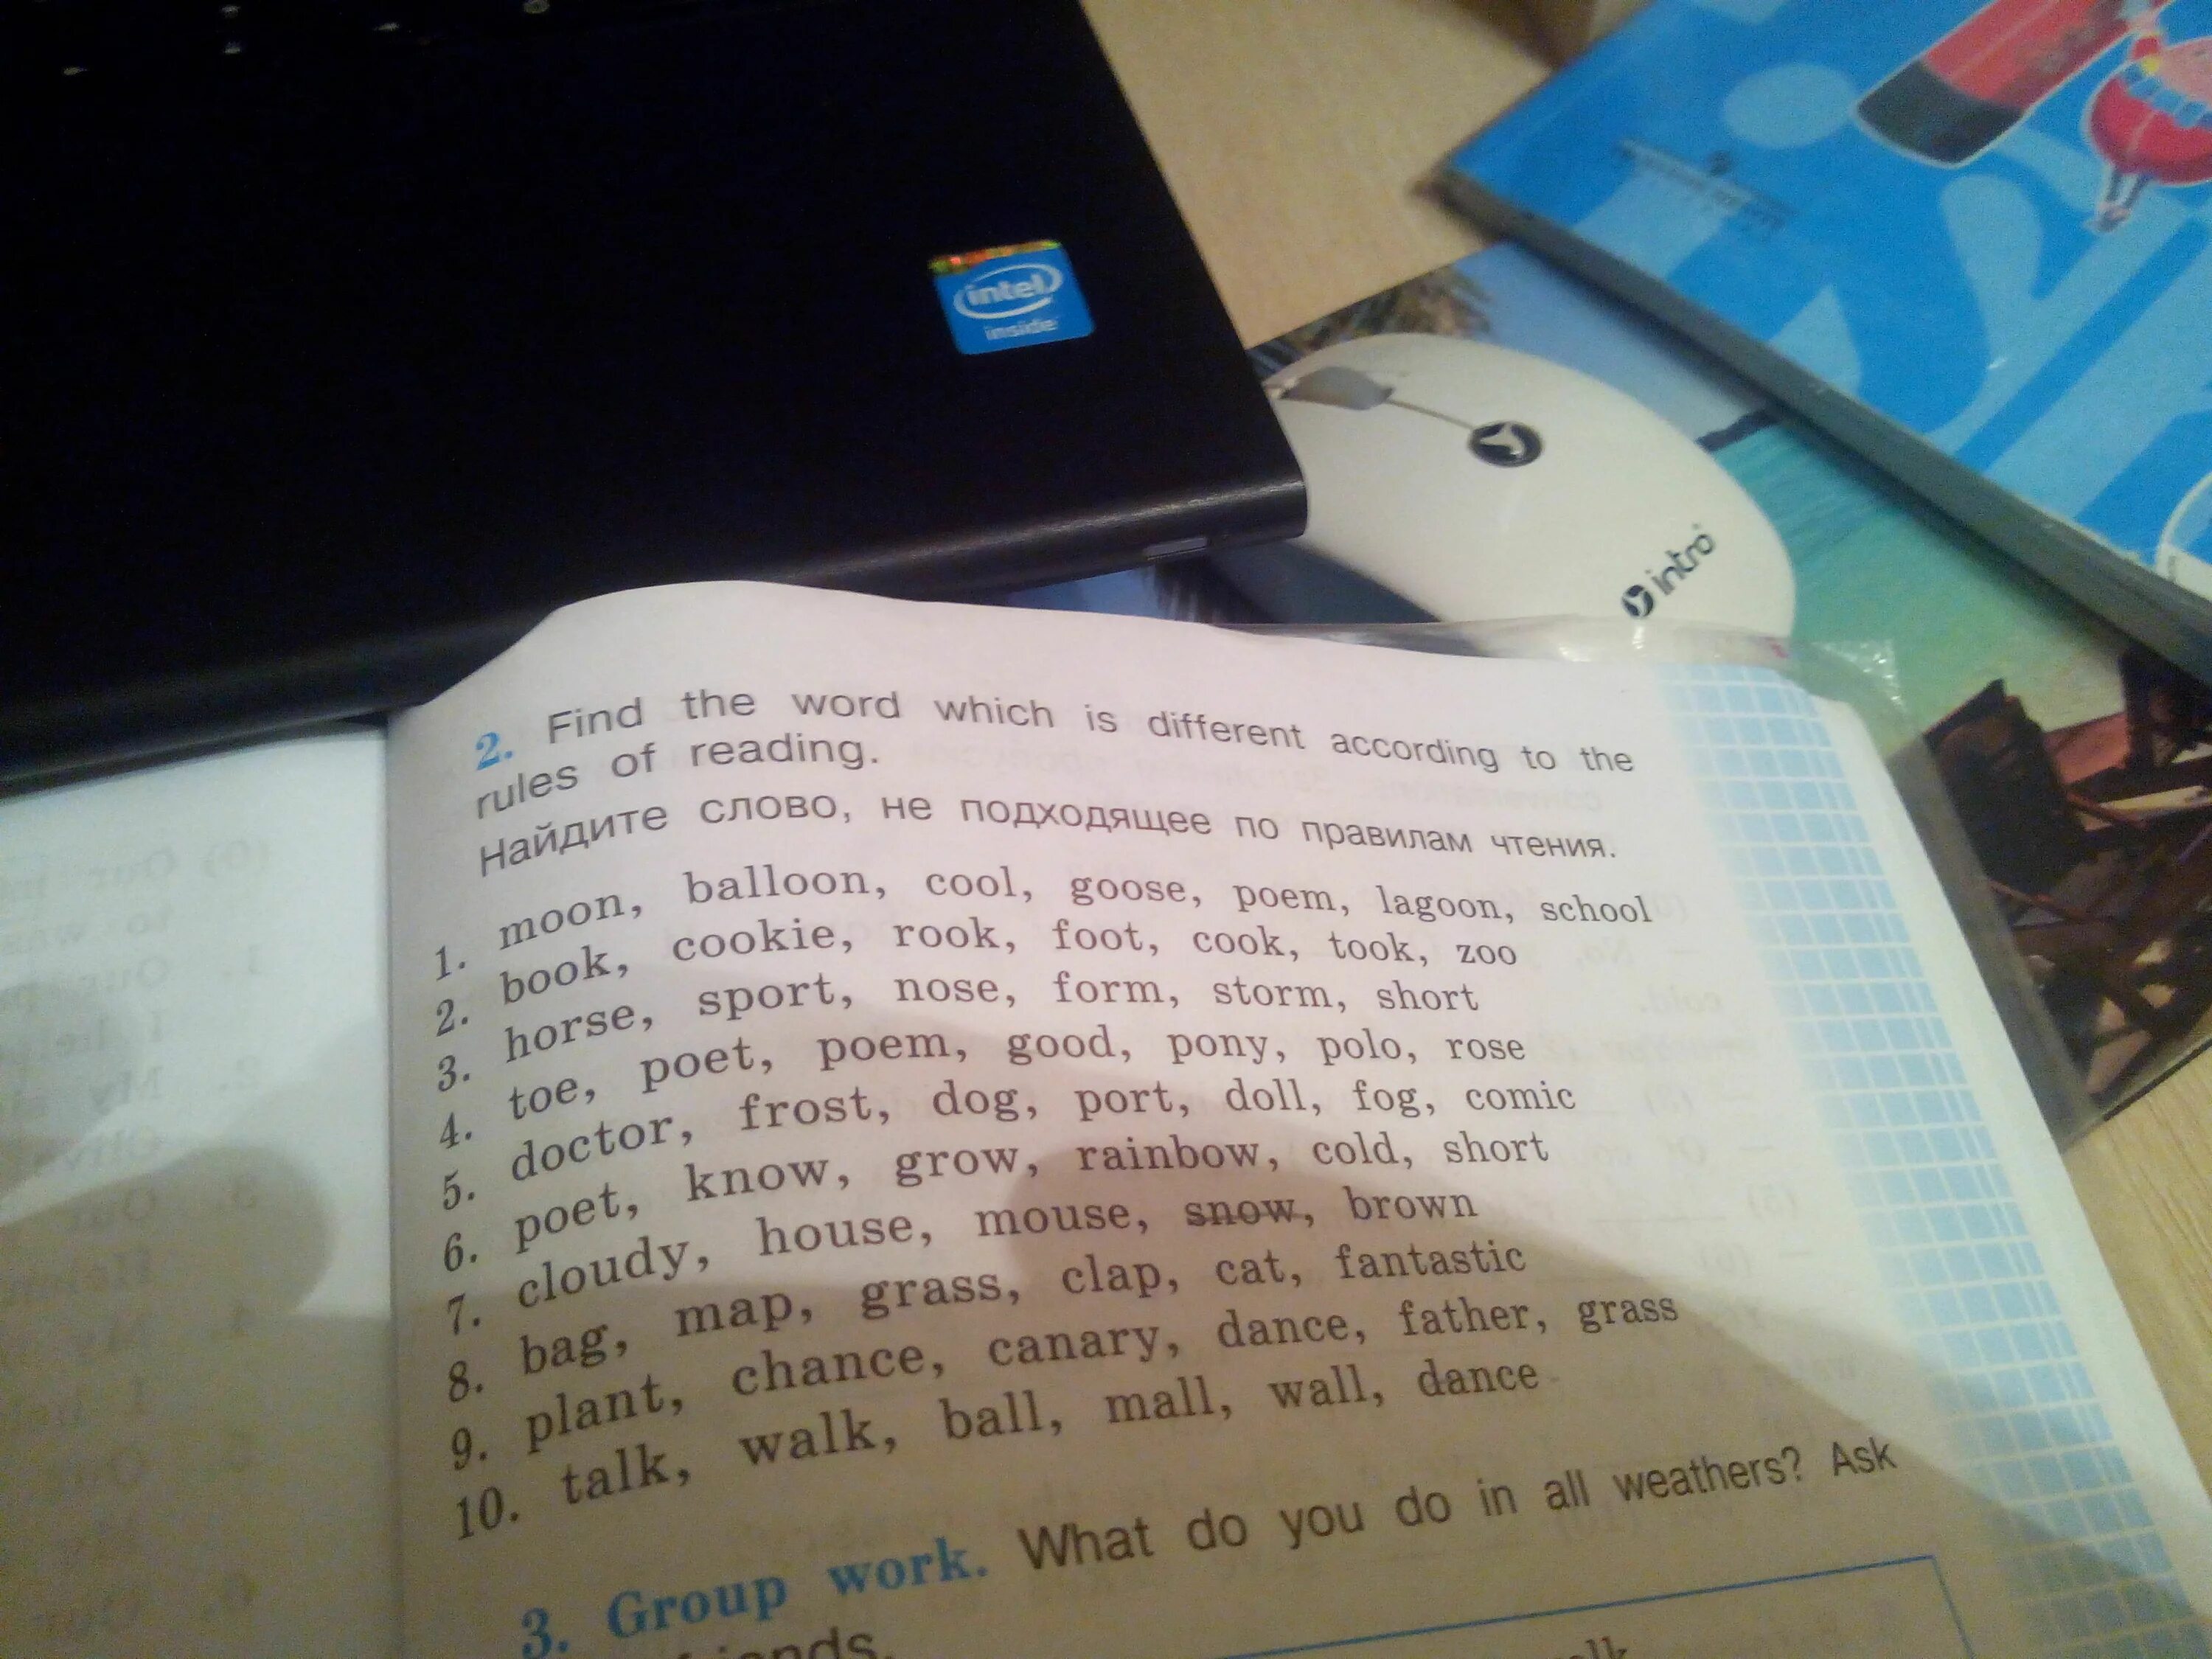 intel
inside
intro
2. Find the word which is different according to the
rules of reading.
Найдите слово, не подходящее по правилам чтения.
1. moon, balloon, cool, goose, poem, lagoon, school
2. book, cookie, rook, foot, cook, took, zoo
3. horse, sport, nose, form, storm, short
4. toe, poet, poem, good, pony, polo, rose
5. doctor, frost, dog, port, doll, fog, comic
6. poet, know, grow, rainbow, cold, short
7. cloudy, house, mouse, snow, brown
8. bag, map, grass, clap, cat, fantastic
9. plant, chance, canary, dance, father, grass
10. talk, walk, ball, mall, wall, dance
3. Group work. What do you do in all weathers? Ask